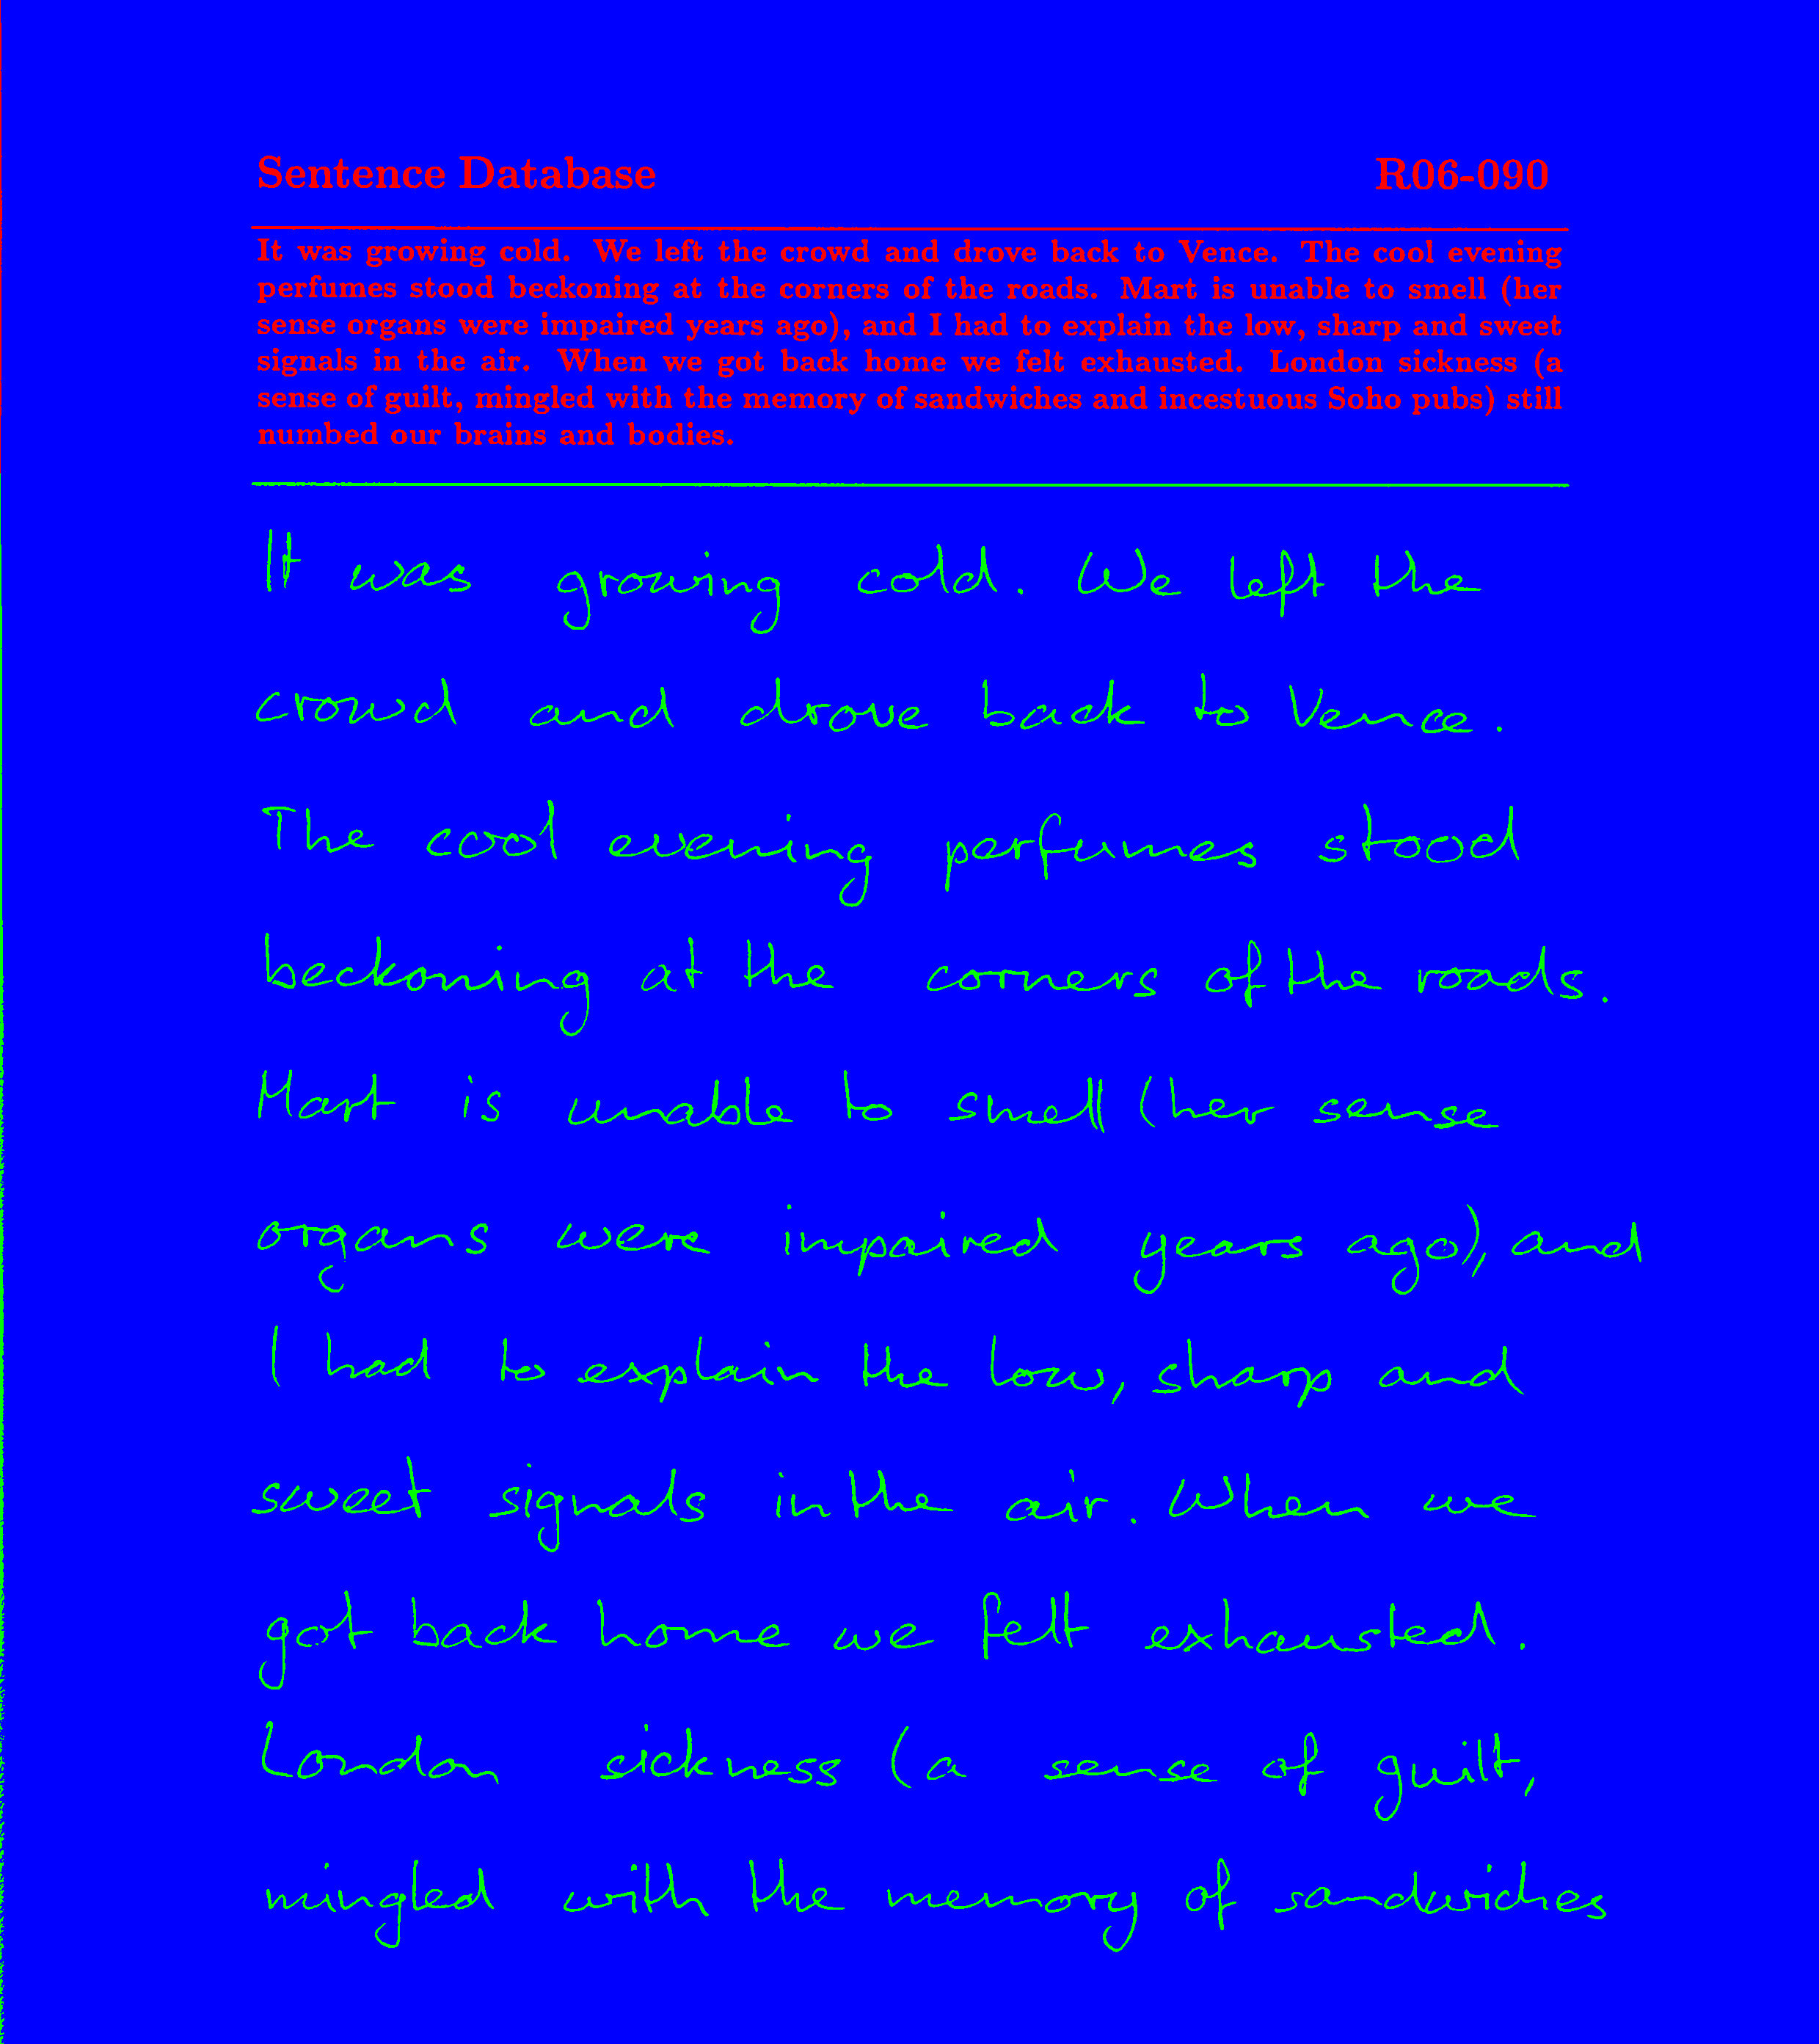 Sentence Database R06-090
It was growing cold. We left the crowd and drove back to Vence. The cool evening
perfumes stood beckoning at the corners of the roads. Mart is unable to smell (her
sense organs were impaired years ago), and I had to explain the low, sharp and sweet
signals in the air. When we got back home we felt exhausted. London sickness (a
sense of guilt, mingled with the memory of sandwiches and incestuous Soho pubs) still
numbed our brains and bodies.
It was growing cold. We left the
crowd and drove back to Vence.
The cool evening perfumes stood
beckoning at the corners of the roads.
Mart is unable to smell (her sense
organs were impaired years ago), and
I had to explain the low, sharp and
sweet signals in the air. When we
got back home we felt exhausted.
London sickness (a sense of guilt,
mingled with the memory of sandwiches